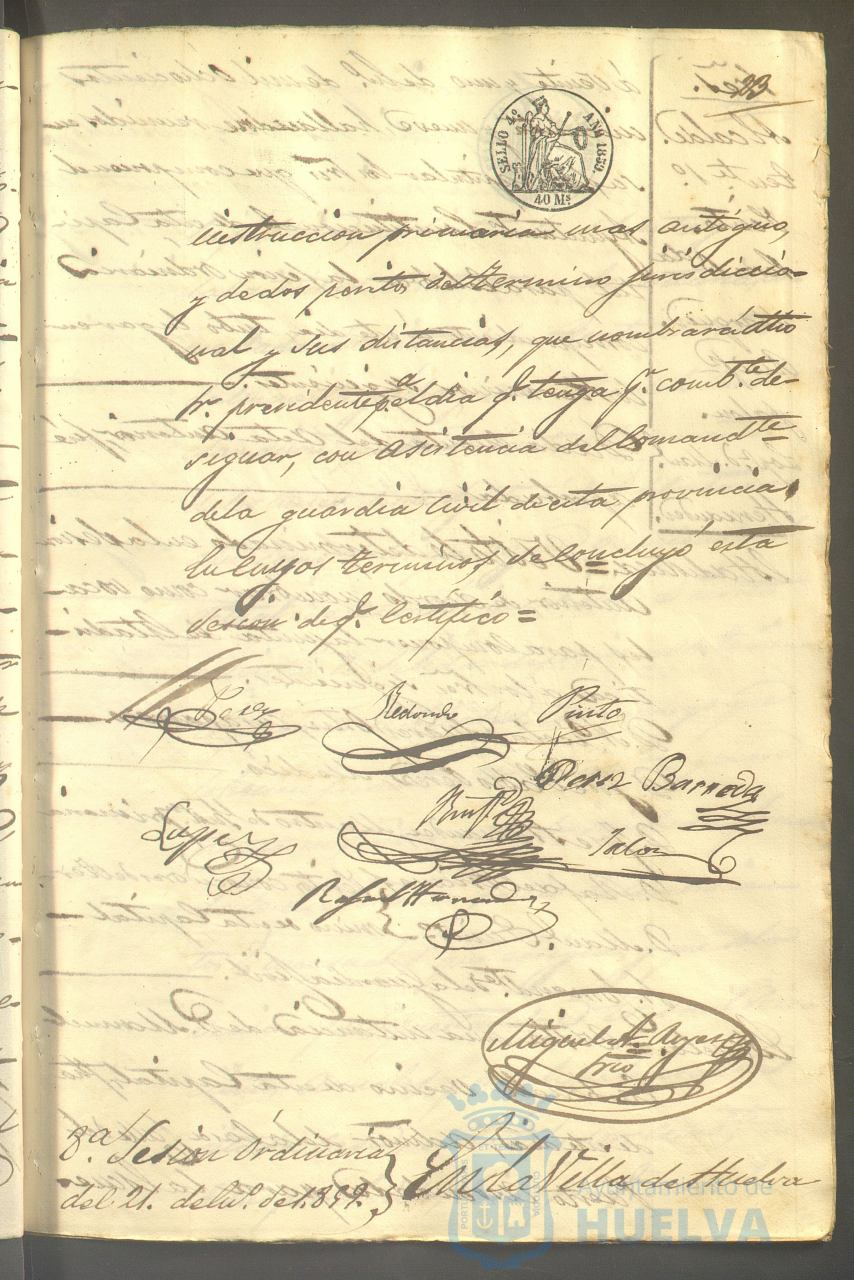 23
SELLO 4º AÑO 1859.
40 Ms
instruccion primaria mas antiguo,
y de dos peritos del termino jurisdiccio=
nal y sus distancias, que nombrará dho
Sr. presidente pa. el dia q. tenga pr. combte. de=
signar, con asistencia del Comandte
de la guardia Civil de esta provincia.
En cuyos terminos, se concluyó esta
sesion de q. Certifico=
Redondo Pinto
Perez Barroda
Lopez
Rafael
Miguel
Srio
8ª Sesion Ordinaria
del 21. de 1859.
En la Villa de Huelva
Ayuntamiento de
HUELVA